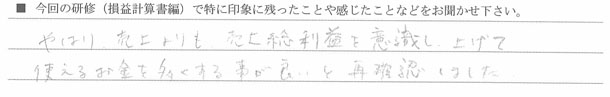 ■ 今回の研修(損益計算書編)で特に印象に残ったことや感じたことなどをお聞かせ下さい。
やはり、売上よりも、売上総利益を意識し、上げて
使えるお金を多くする事が良いと再確認しました。